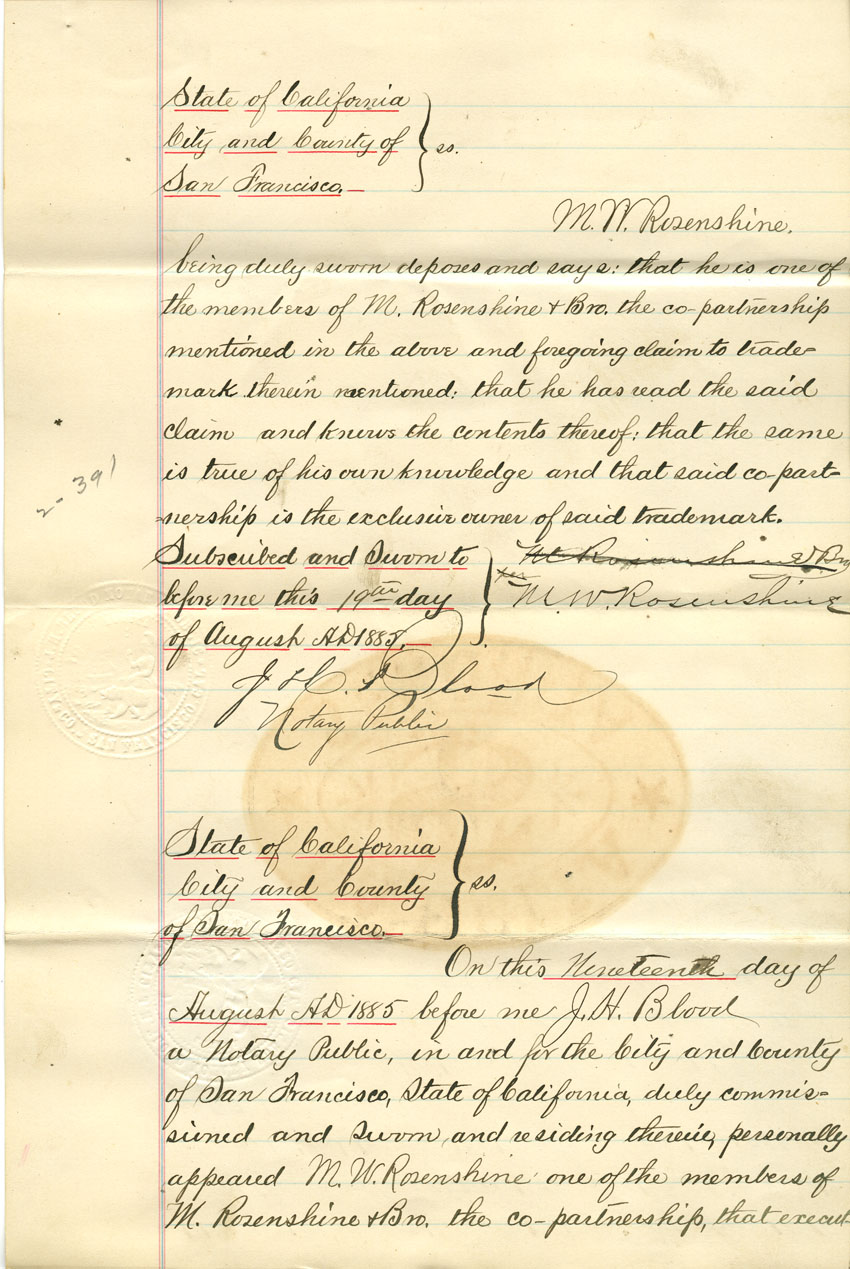 State of California
City and County of
San Francisco.
ss.
M. W. Rosenshine.
being duly sworn deposes and says: that he is one of
the members of M. Rosenshine & Bro. the co-partnership
mentioned in the above and foregoing claim to trade-
mark therein mentioned: that he has read the said
claim and knows the contents thereof: that the same
is true of his own knowledge and that said co-part-
=nership is the exclusive owner of said trademark.
2-391
Subscribed and Sworn to
before me this 19th day
of August AD 1885.
M Rosenshine & Bro
per
M. W. Rosenshine
J. H. Blood
Notary Public
SAN FRANCISCO
State of California
City and County
of San Francisco.
ss.
On this Nineteenth day of
August AD 1885 before me J. H. Blood
a Notary Public, in and for the City and County
of San Francisco, State of California, duly commis-
sioned and sworn and residing therein, personally
appeared M. W. Rosenshine one of the members of
M. Rosenshine & Bro. the co-partnership, that execut-